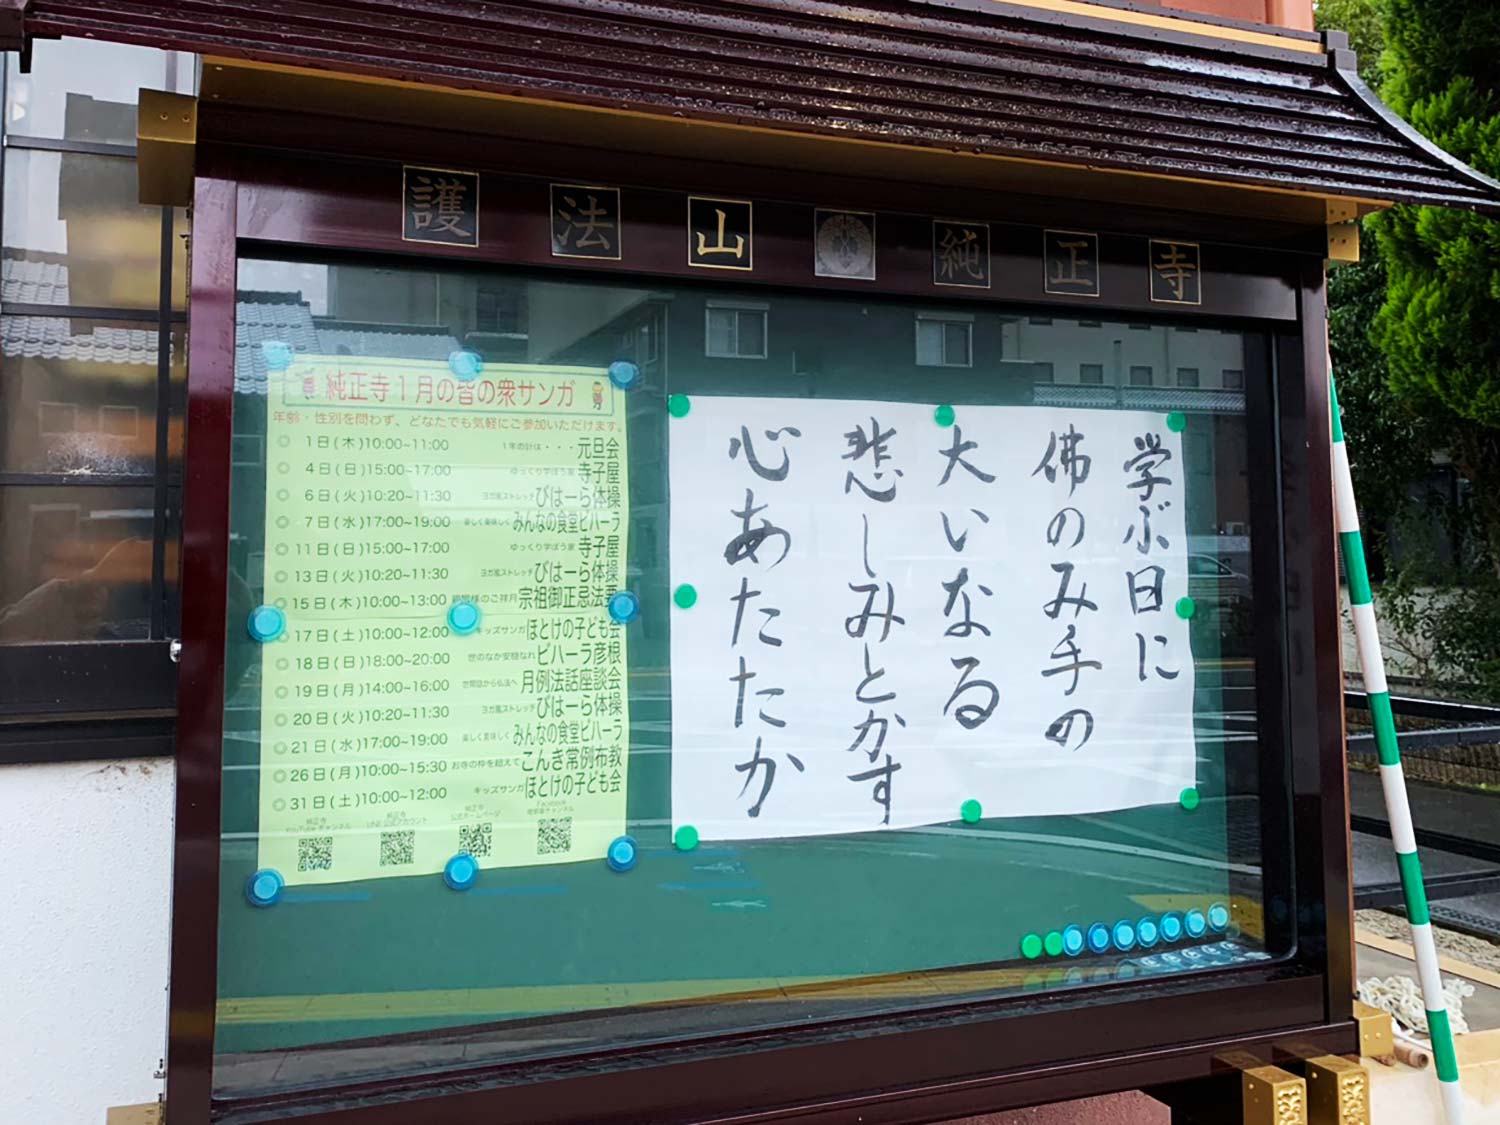 護法山 純正寺
純正寺1月の皆の衆サンガ
年齢・性別を問わず、どなたでも気軽にご参加いただけます。
◎ 1日(木)10:00~11:00 1年の計は・・・元旦会
◎ 4日(日)15:00~17:00 ゆっくり学ぼう家 寺子屋
◎ 6日(火)10:20~11:30 ヨガ風ストレッチ びはーら体操
◎ 7日(水)17:00~19:00 楽しく美味しく みんなの食堂ビハーラ
◎ 11日(日)15:00~17:00 ゆっくり学ぼう家 寺子屋
◎ 13日(火)10:20~11:30 ヨガ風ストレッチ びはーら体操
◎ 15日(木)10:00~13:00 親鸞様のご祥月 宗祖御正忌法要
◎ 17日(土)10:00~12:00 キッズサンガ ほとけの子ども会
◎ 18日(日)18:00~20:00 世のなか安穏なれ ビハーラ彦根
◎ 19日(月)14:00~16:00 世間話から仏法へ 月例法話座談会
◎ 20日(火)10:20~11:30 ヨガ風ストレッチ びはーら体操
◎ 21日(水)17:00~19:00 楽しく美味しく みんなの食堂ビハーラ
◎ 26日(月)10:00~15:30 お寺の枠を超えて こんき常例布教
◎ 31日(土)10:00~12:00 キッズサンガ ほとけの子ども会
純正寺
YouTube チャンネル
純正寺
LINE 公式アカウント
純正寺
公式ホームページ
Facebook
学ぶ日に
佛のみ手の
大いなる
悲しみとかす
心あたたか